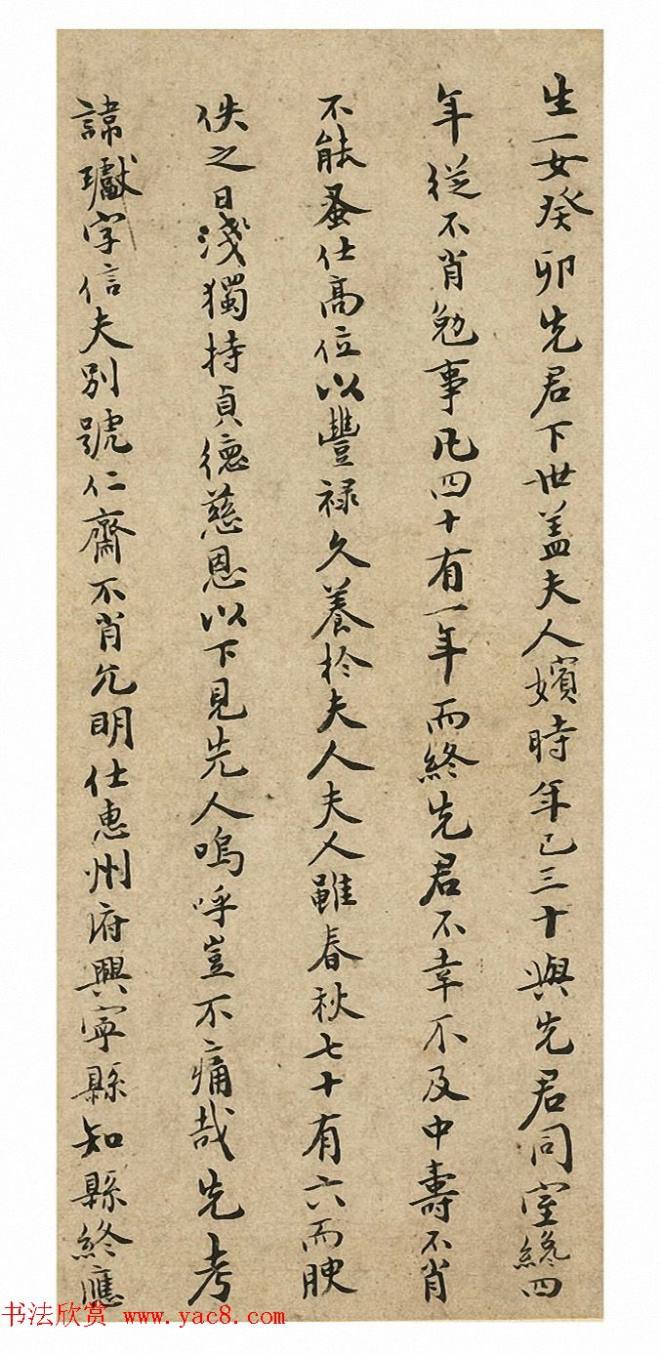 生一女癸卯先君下世盖夫人嬪時年已三十與先君同室纔四
年従不肖勉事凡四十有一年而終先君不幸不及中壽不肖
不能蚤仕髙位以豐禄久養扵夫人夫人雖春秋七十有六而腴
佚之日淺獨持貞德慈恩以下見先人嗚呼豈不痛哉先考
諱瓛字信夫別號仁齋不肖允明仕惠州府興寧縣知縣終應
书法欣赏 www.yac8.com